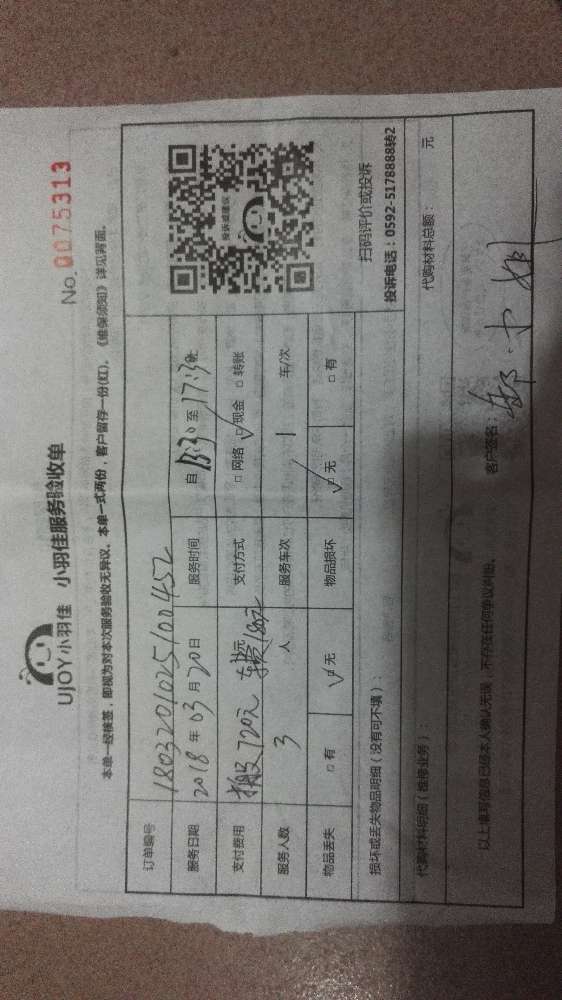 UJOY小羽佳 小羽佳服务验收单
No. 0075313
本单一经核签,即视为对本次服务验收无异议。本单一式两份,客户留存一份(红)。《维保须知》详见背面。
订单编号 1803201025100452
服务日期 2018年03月20日 服务时间 自 13:30 至 17:30
支付费用 搬及720元 车费180元 支付方式 □网络 ☑现金 □转账
服务人数 3 人 服务车次 1 车/次
物品丢失 □有 ☑无 物品损坏 ☑无 □有
投诉或建议
扫码评价或投诉
投诉电话:0592-5178888转2
损坏或丢失物品明细(没有可不填):
代购材料明细(维修业务): 代购材料总额: 元
以上填写信息已经本人确认无误,不存在任何争议纠纷。
客户签名: